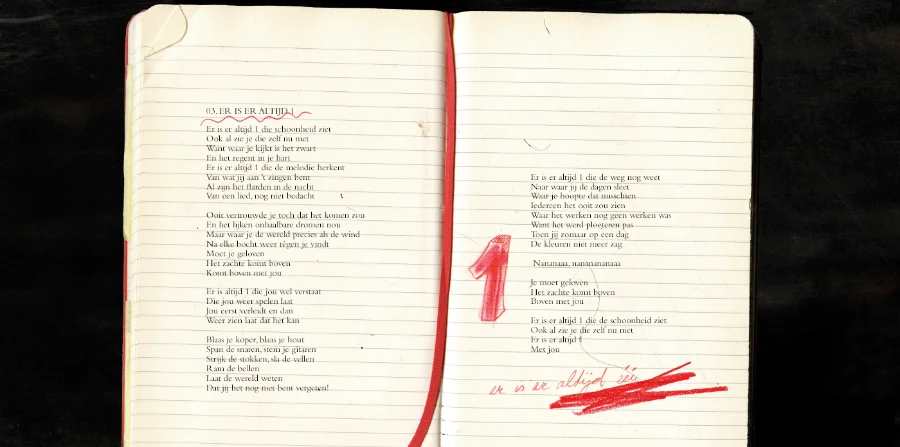 03. ER IS ER ALTIJD 1
Er is er altijd 1 die schoonheid ziet
Ook al zie je die zelf nu niet
Want waar je kijkt is het zwart
En het regent in je hart
Er is er altijd 1 die de melodie herkent
Van wat jij aan 't zingen bent
Al zijn het flarden in de nacht
Van een lied, nog niet bedacht
Ooit vertrouwde je toch dat het komen zou
En het lijken onhaalbare dromen nou
Maar waar je de wereld precies als de wind
Na elke bocht weer tégen je vindt
Moet je geloven
Het zachte komt boven
Komt boven met jou
Er is altijd 1 die jou wel verstaat
Die jou weer spelen laat
Jou eerst verleidt en dan
Weer zien laat dat het kan
Blaas je koper, blaas je hout
Span de snaren, stem je gitaren
Strijk de stokken, sla de vellen
Ram de bellen
Laat de wereld weten
Dat jij het nog niet bent vergeten!
Er is er altijd 1 die de weg nog weet
Naar waar jij de dagen sleet
Waar je hoopte dat misschien
Iedereen het ooit zou zien
Waar het werken nog geen werken was
Want het werd ploeteren pas
Toen jij zomaar op een dag
De kleuren niet meer zag
Nananaaa, nananananaaa
Je moet geloven
Het zachte komt boven
Boven met jou
Er is er altijd 1 die de schoonheid ziet
Ook al zie je die zelf nu niet
Er is er altijd 1
Met jou
1
er is er altijd één